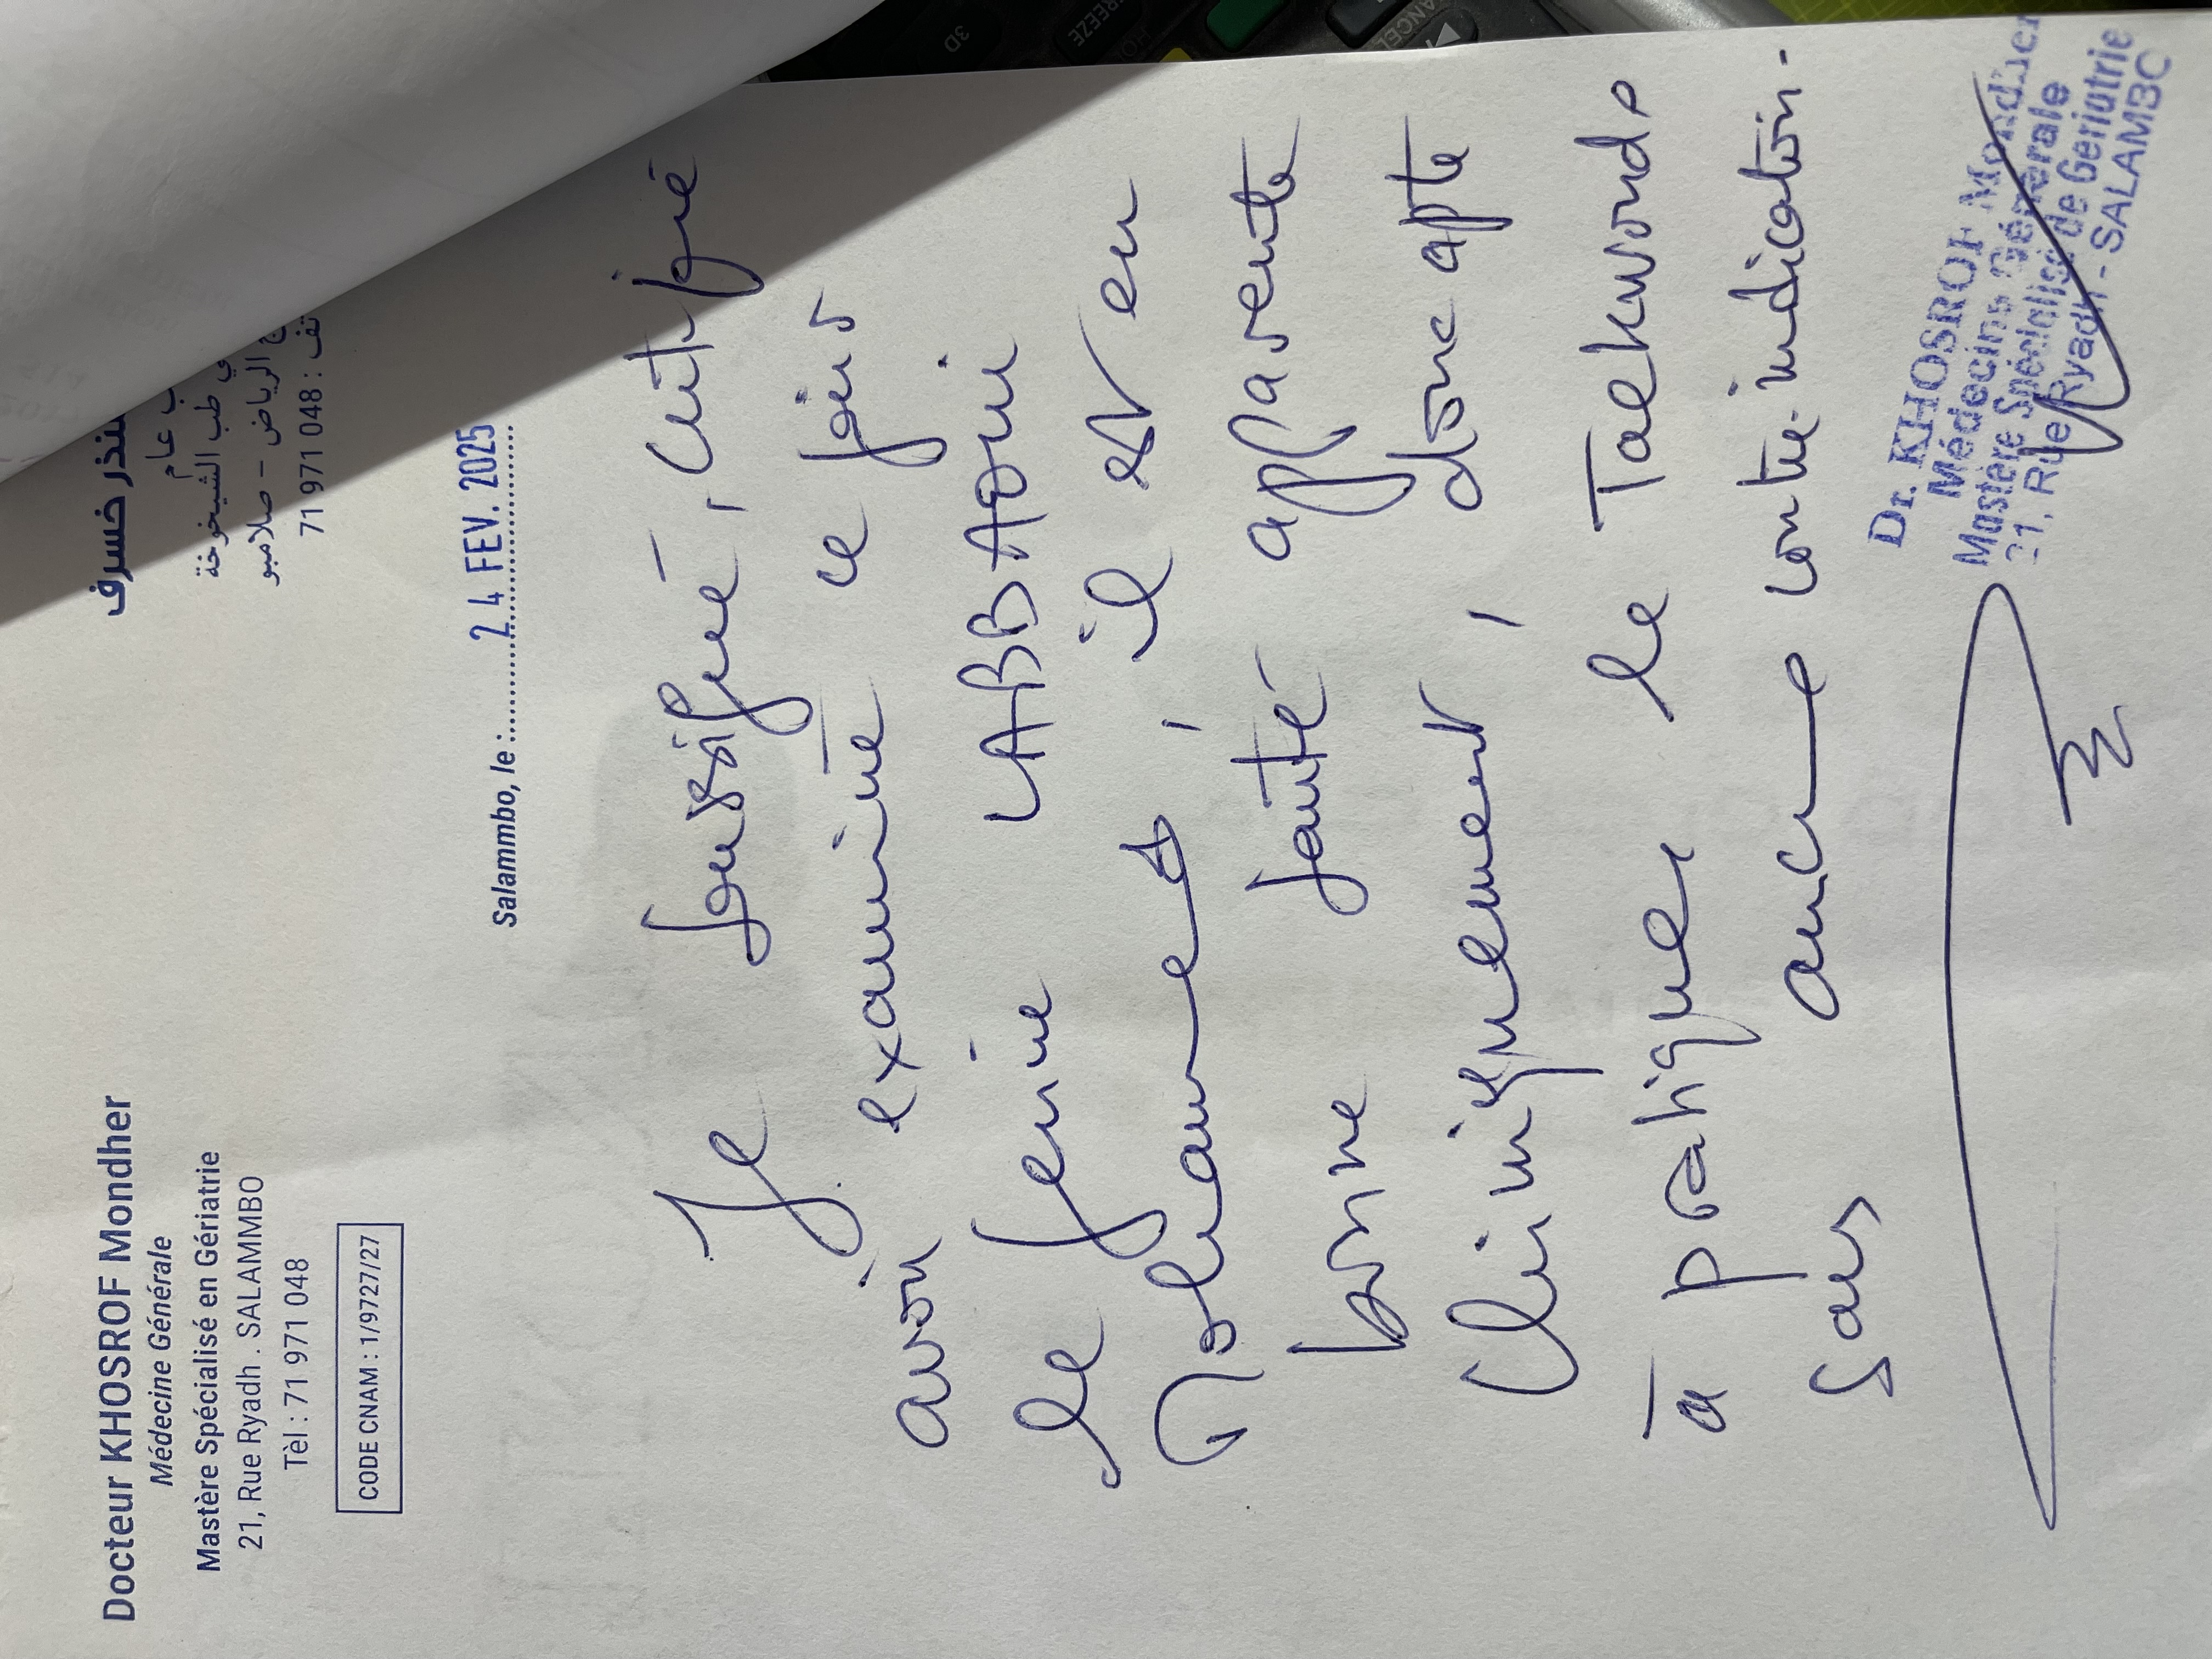 Docteur KHOSROF Mondher
Médecine Générale
Mastère Spécialisé en Gériatrie
21, Rue Ryadh . SALAMMBO
Tèl : 71 971 048
CODE CNAM : 1/9727/27
منذر خسرف
ب عام
ي طب الشيخوخة
ج الرياض - صلامبو
تف : 048 971 71
Salammbo, le : 24 FEV. 2025
Je soussigné, certifié
avoir examiné ce jour
le jeune LABBAOUI
Mohamed, il est en
bonne santé apparente
Cliniquement, donc apte
à pratiquer le Taekwondo
sans aucune contre-indication-
Dr. KHOSROF Mondher
Médecine Générale
Mastère Spécialisé de Gériatrie
21, Rue Ryadh - SALAMBO
3D
FREEZE
HO
CANCEL